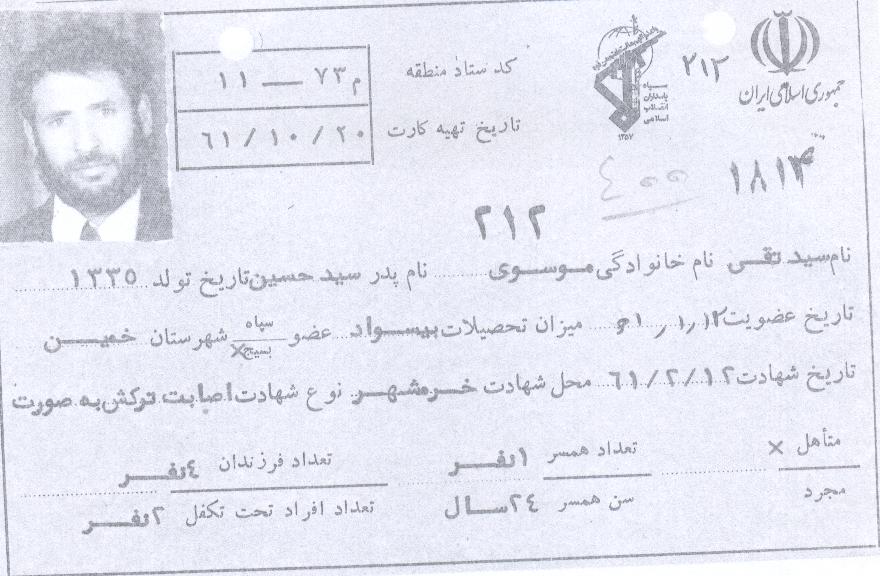 جمهوری اسلامی ایران
۲۱۲
سپاه
پاسداران
انقلاب
اسلامی
۱۳۵۷
کد ستاد منطقه م ۷۳ — ۱۱
تاریخ تهیه کارت ۶۱/۱۰/۲۰
۱۸۱۴
۴۰۰
۲۱۲
نام سید تقی نام خانوادگی موسوی نام پدر سید حسین تاریخ تولد ۱۳۳۵
تاریخ عضویت میزان تحصیلات بیسواد عضو سپاه بسیج × شهرستان خمین
تاریخ شهادت ۶۱/۲/۱۲ محل شهادت خرمشهر نوع شهادت اصابت ترکش به صورت
متأهل × تعداد همسر ۱نفر تعداد فرزندان ٤نفر
مجرد سن همسر ۲٤سال تعداد افراد تحت تکفل ۲نفر